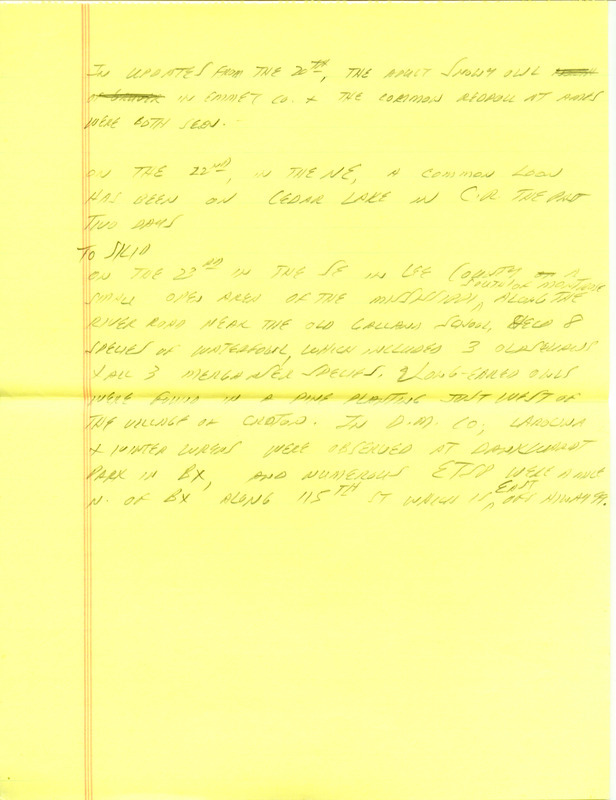 IN UPDATES FROM THE 20TH, THE ADULT SNOWY OWL
IN EMMET CO. + THE COMMON REDPOLL AT AMES
WERE BOTH SEEN.
ON THE 22ND, IN THE NE, A COMMON LOON
HAS BEEN ON CEDAR LAKE IN C.R THE PAST
TWO DAYS
TO SKIP
ON THE 23RD IN THE SE IN LEE COUNTY A
SMALL OPEN AREA OF THE MISSISSIPPI SOUTH OF MONTROSE ALONG THE
RIVER ROAD NEAR THE OLD GALLAND SCHOOL, HELD 8
SPECIES OF WATERFOWL, WHICH INCLUDED 3 OLDSQUAWS
+ ALL 3 MERGANSER SPECIES. 2 LONG-EARED OWLS
WERE FOUND IN A PINE PLANTING JUST WEST OF
THE VILLAGE OF CROTON. IN D.M. CO, CAROLINA
+ WINTER WRENS WERE OBSERVED AT DANKWARDT
PARK IN BX, AND NUMEROUS ETSP WERE A MILE
N. OF BX ALONG 115TH ST WHICH IS EAST OFF HIWAY 99.